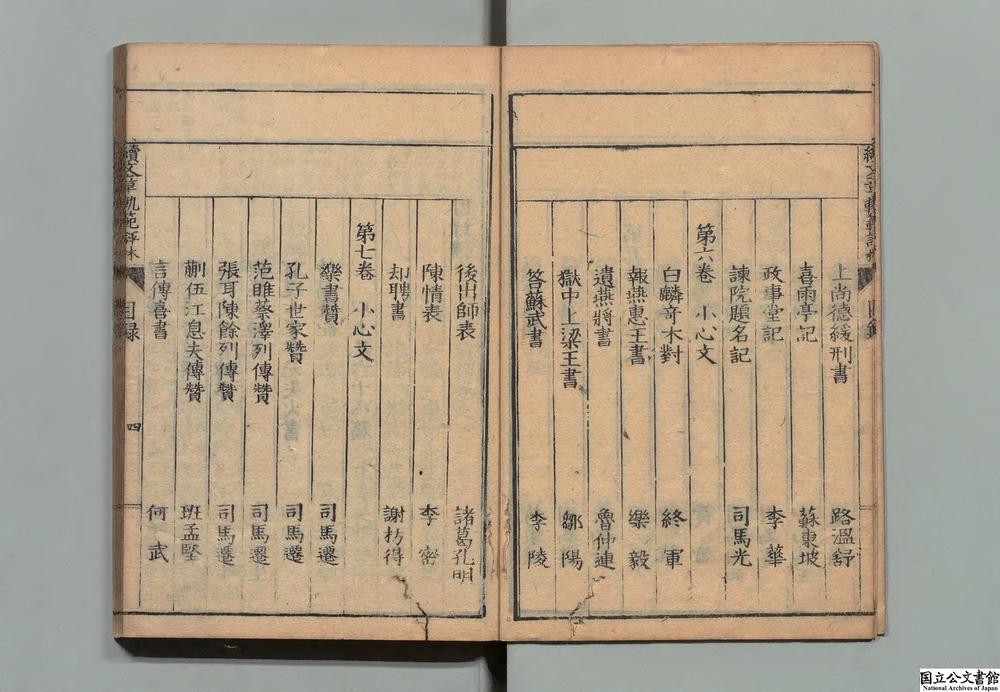 上尚德緩刑書 路溫舒
喜雨亭記 蘇東坡
政事堂記 李華
諫院題名記 司馬光
第六卷 小心文
白麟竒木對 終軍
報燕惠王書 樂毅
遺燕將書 魯仲連
獄中上梁王書 鄒陽
答蘇武書 李陵
後出師表 諸葛孔明
陳情表 李密
却聘書 謝枋得
第七卷 小心文
樂書贊 司馬遷
孔子世家贊 司馬遷
范睢蔡澤列傳贊 司馬遷
張耳陳餘列傳贊 司馬遷
蒯伍江息夫傳贊 班孟堅
言傳喜書 何武
續文章軌範評林 目録 四
国立公文書館
National Archives of Japan